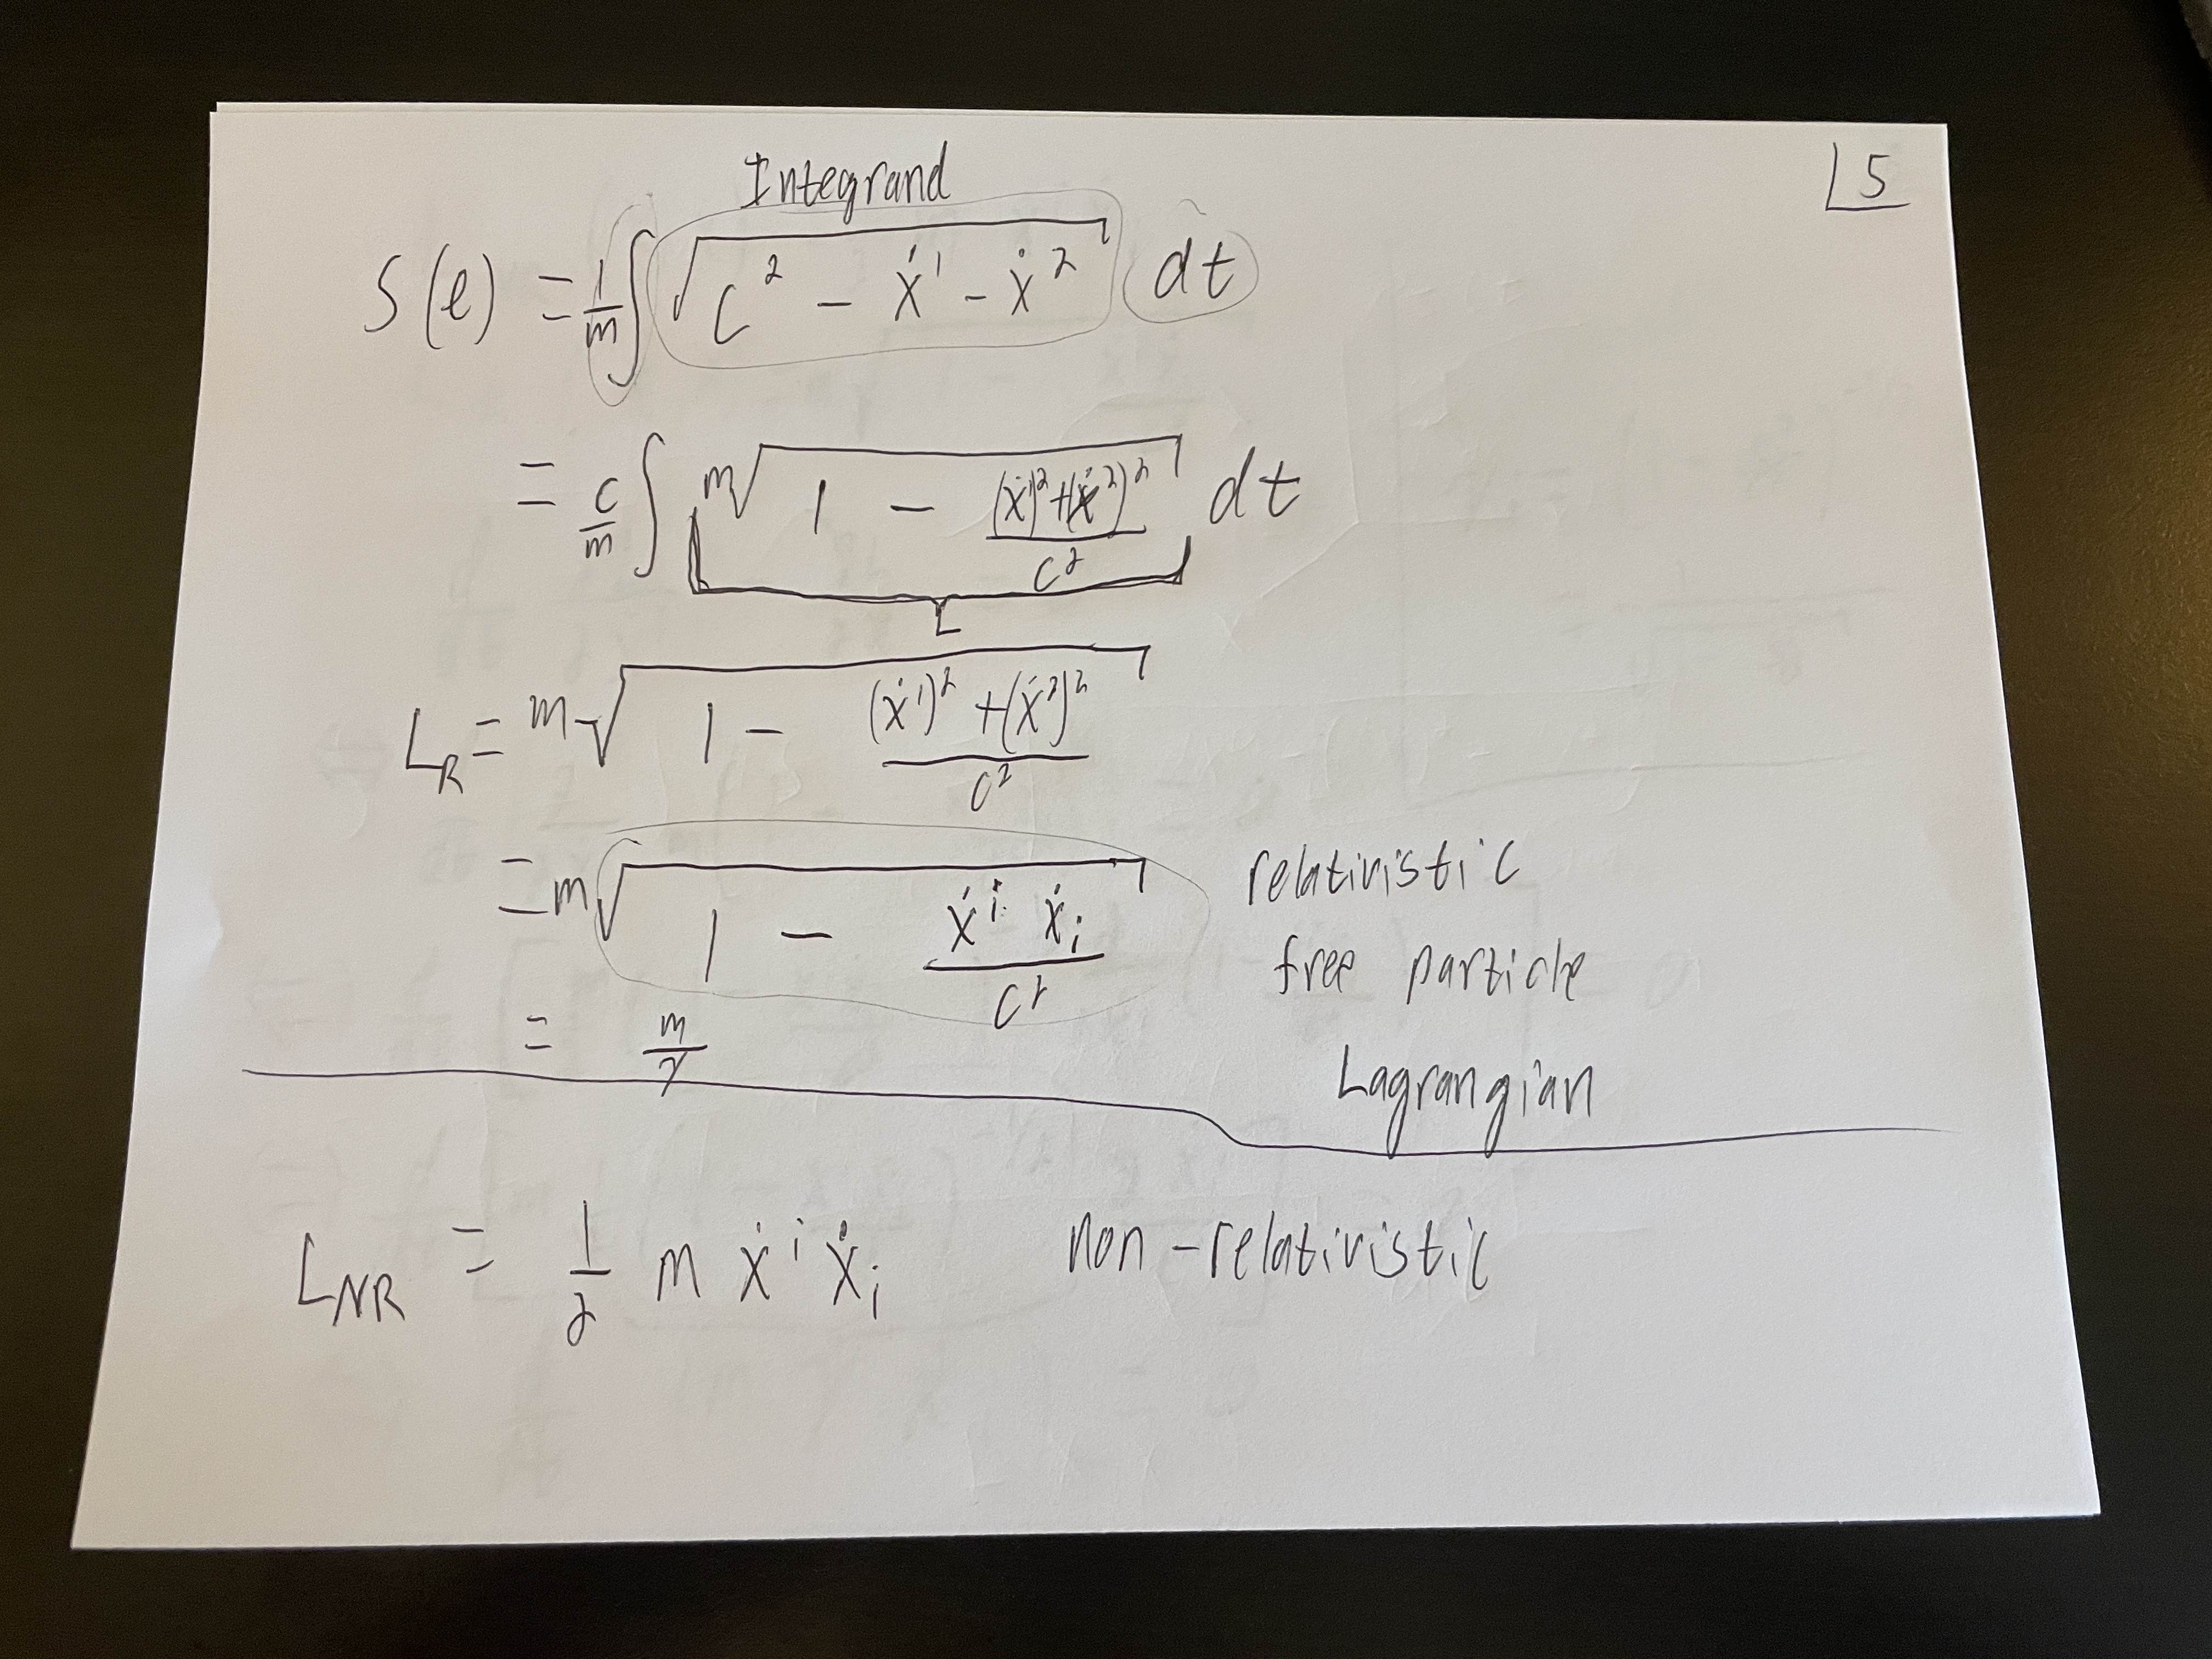 5
Integrand
S(l) = 1/m ∫ √(c² - ẋ¹ - ẋ²) dt
= c/m ∫ m√(1 - ((ẋ¹)² + (ẋ²)²)/c²) dt
L
L_R = m√(1 - ((ẋ¹)² + (ẋ²)²)/c²)
= m√(1 - ẋⁱ ẋᵢ/c²) relativistic
free particle
= m/γ
Lagrangian
L_NR = 1/2 m ẋⁱ ẋᵢ non-relativistic